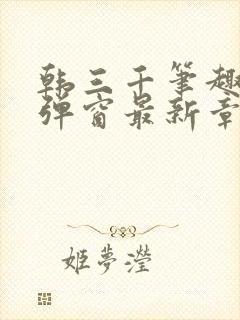 韩三千笔趣
弹窗最新章
姬夢瀅